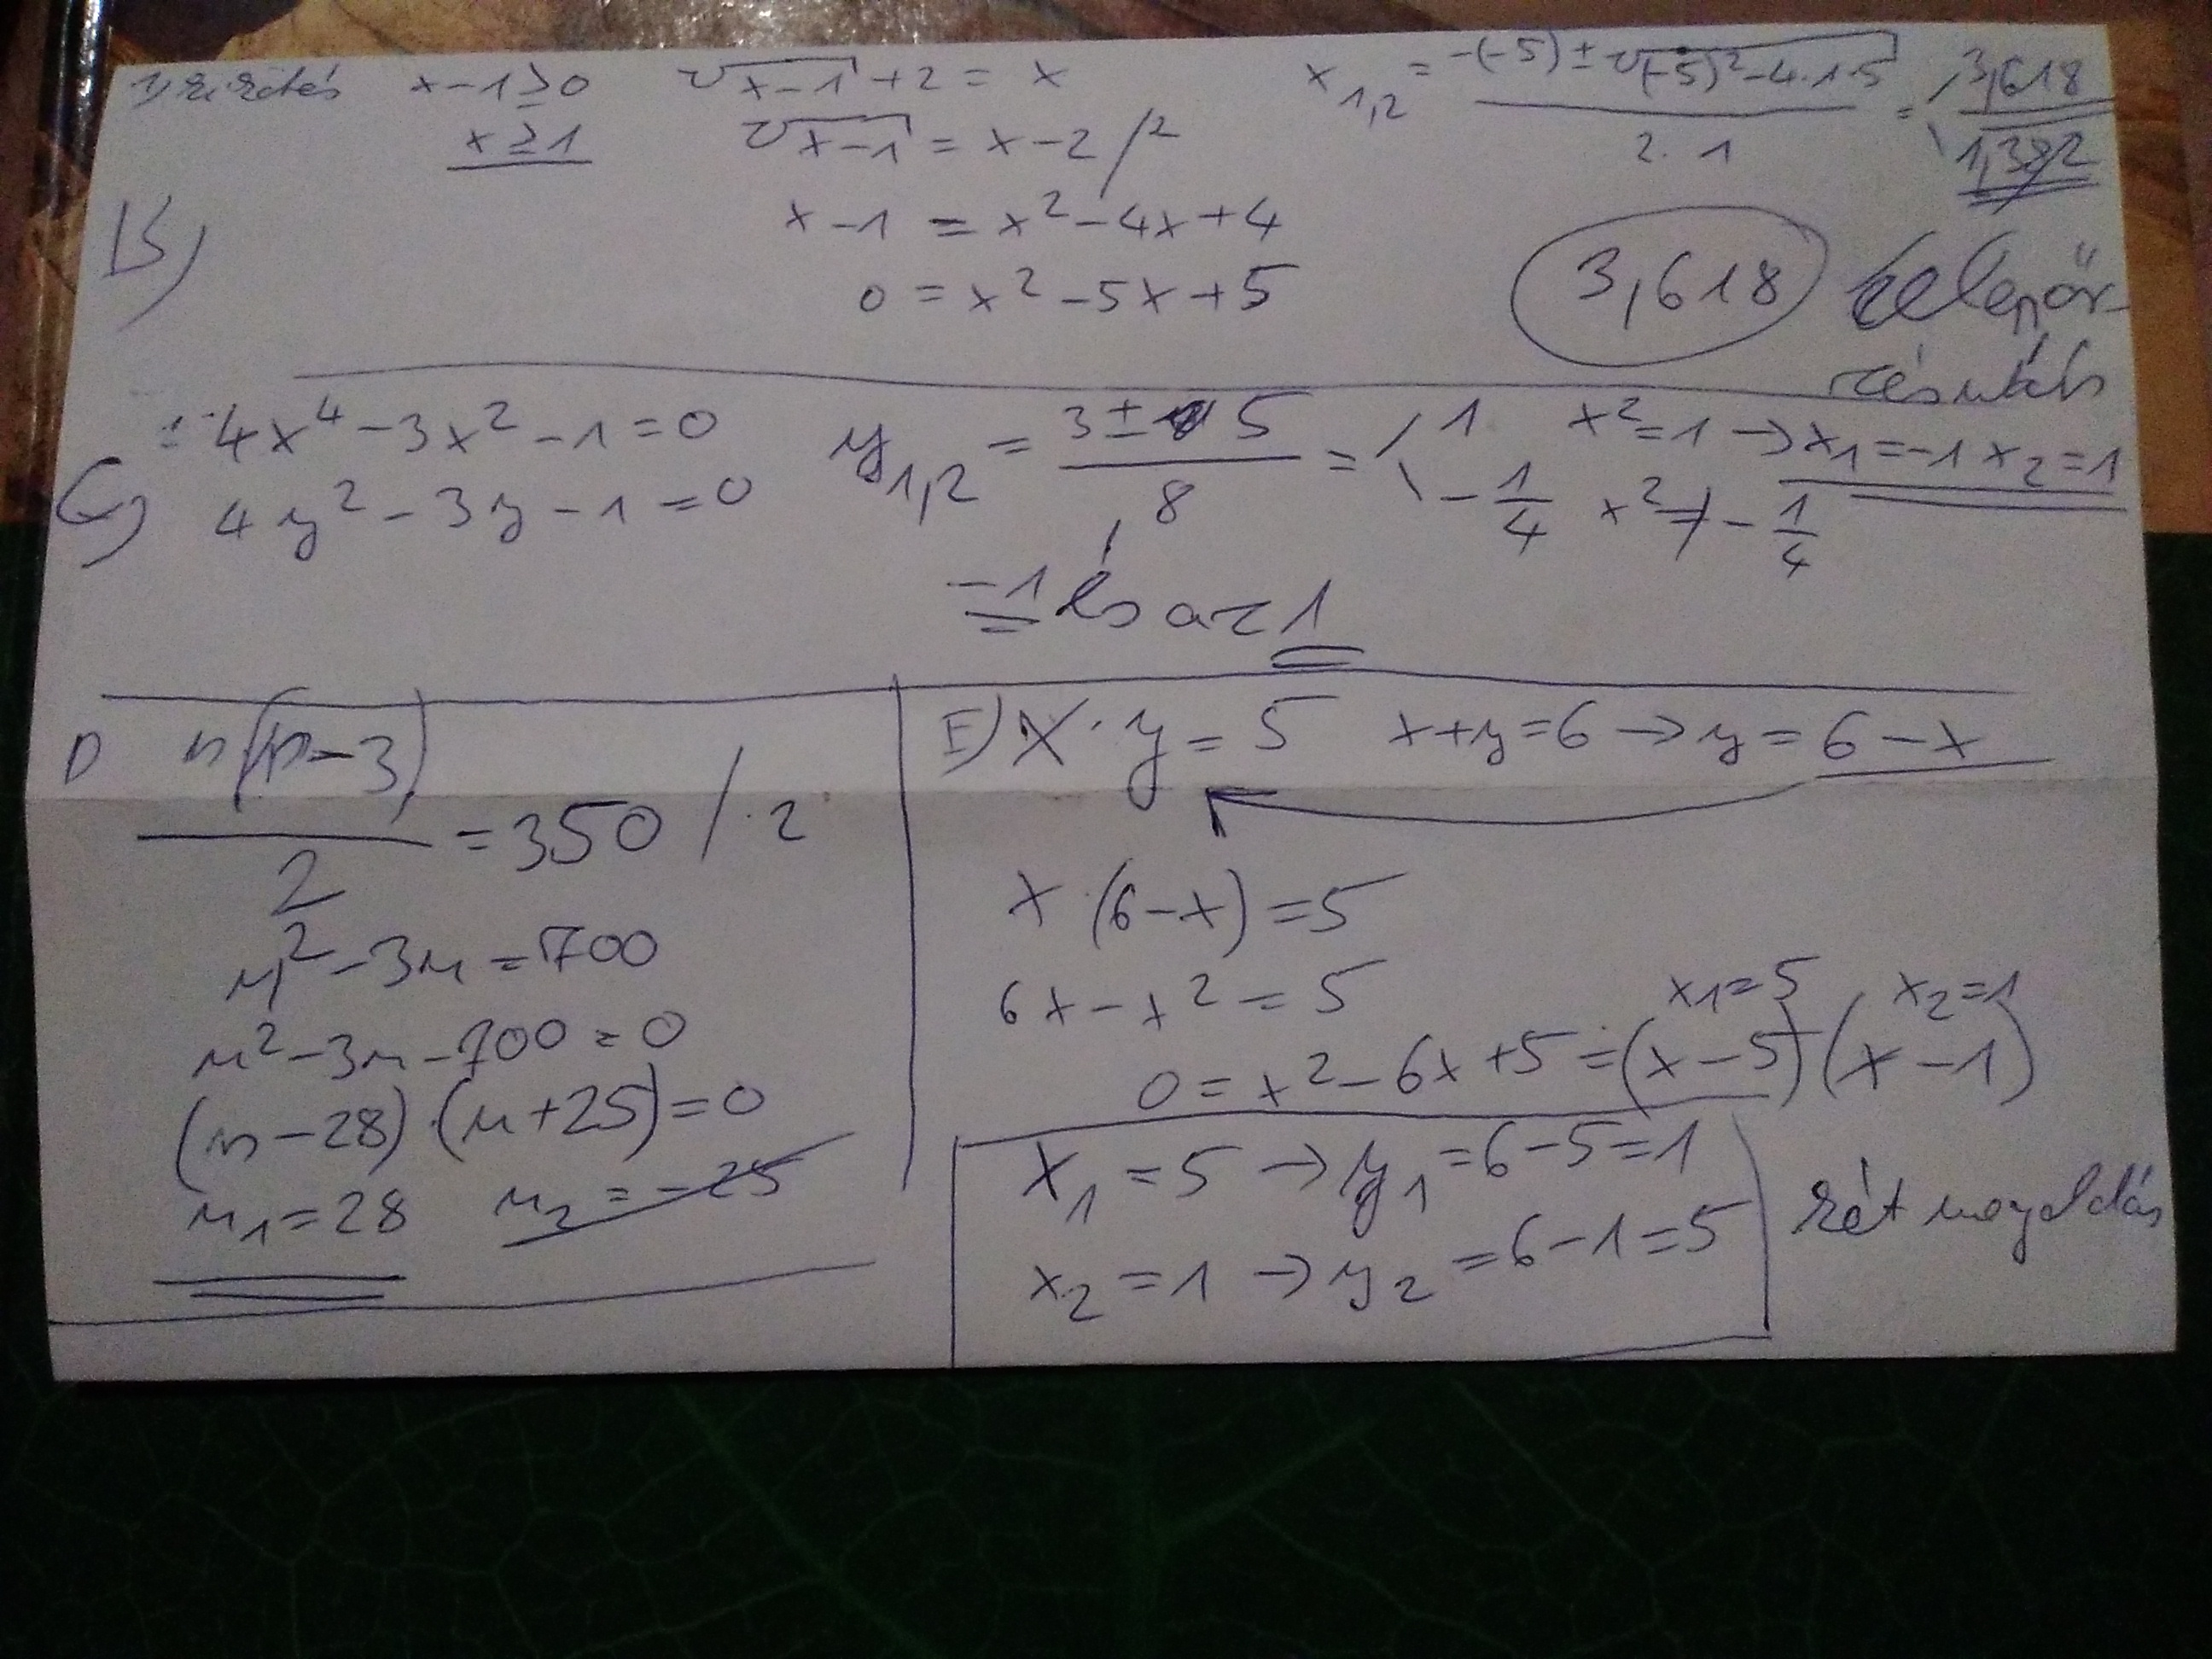 x-1≥0
x≥1
√x-1 +2 = x
√x-1 = x-2 /²
x-1 = x²-4x+4
0 = x²-5x+5
x₁,₂ = (-(-5)±√(-5)²-4·1·5)/(2·1) = 3,618
1,382
3,618
B)
C)
4x⁴-3x²-1=0
4y²-3y-1=0
y₁,₂ = (3±5)/8 = 1
-1/4
x²=1 → x₁=-1 x₂=1
x²≠-1/4
-1 és az 1
D
n(n-3)/2 = 350 /·2
n²-3n=700
n²-3n-700=0
(n-28)·(n+25)=0
n₁=28 n₂=-25
E) x·y=5 x+y=6→y=6-x
x·(6-x)=5
6x-x²=5
x₁=5 x₂=1
0=x²-6x+5=(x-5)(x-1)
x₁=5→y₁=6-5=1
x₂=1→y₂=6-1=5
két megoldás